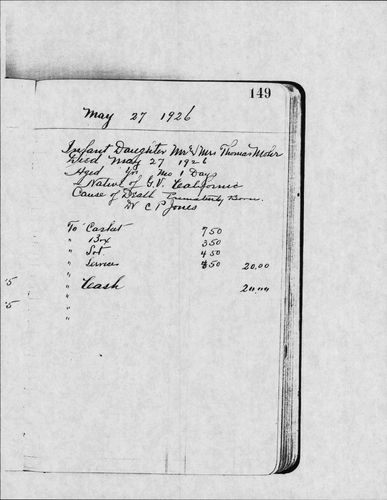 149
May 27 1926
Infant Daughter Mr & Mrs Thomas Moher
Died May 27 1926
Aged Yrs Mo 1 Day
A Native of G.V. California
Cause of Death Prematurely Born.
Dr C P Jones
To Casket 7 50
" Box 3 50
" Lot 4 50
" Services 4 50 20.00
"
" Cash 20.00
"
"
"
5
5